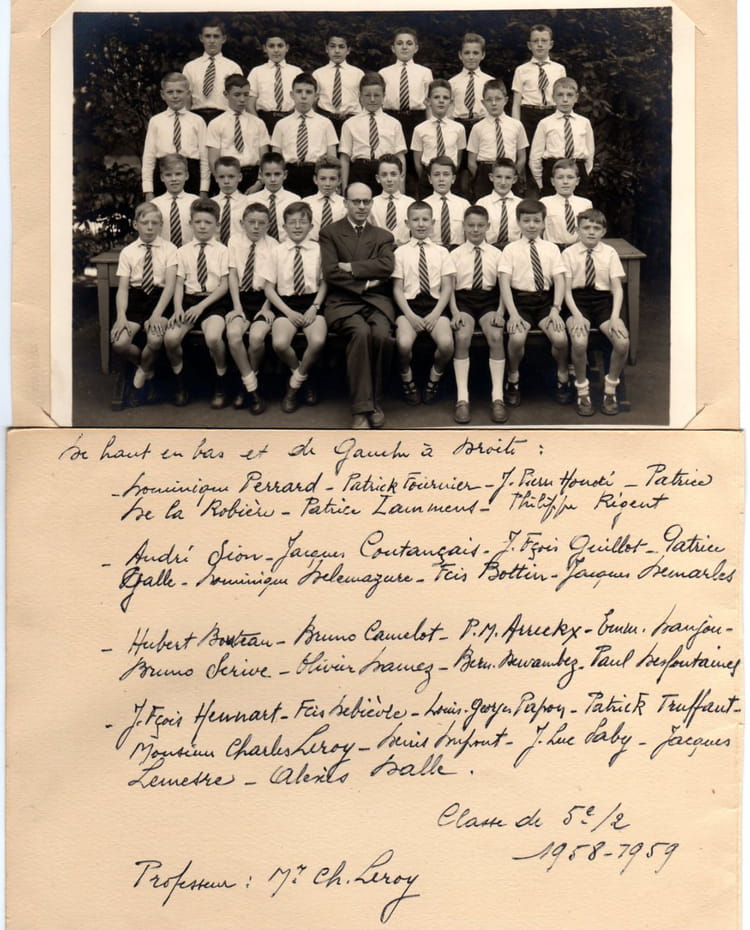 De haut en bas et de Gauche à Droite :
- Dominique Perrard - Patrick Fournier - J. Pierre Houdé - Patrice
de la Robière - Patrice Lammens - Philippe Régent
- André Sion - Jacques Coutançais - J. Fçois Guillot - Patrice
Galle - Dominique Delemazure - Fcis Bottin - Jacques Demarles
- Hubert Bouteau - Bruno Camelot - P.M. Arrickx - Emm. Danjou -
Bruno Scrive - Olivier Damez - Bern. Dewambez - Paul Desfontaines
- J. Fçois Hennart - Fcis Debièvre - Louis-Georges Papon - Patrick Truffaut -
Monsieur Charles Leroy - Denis Dupont - J. Luc Saby - Jacques
Lemesre - Alexis Dalle .
Classe de 5e/2
1958-1959
Professeur : Mr Ch. Leroy